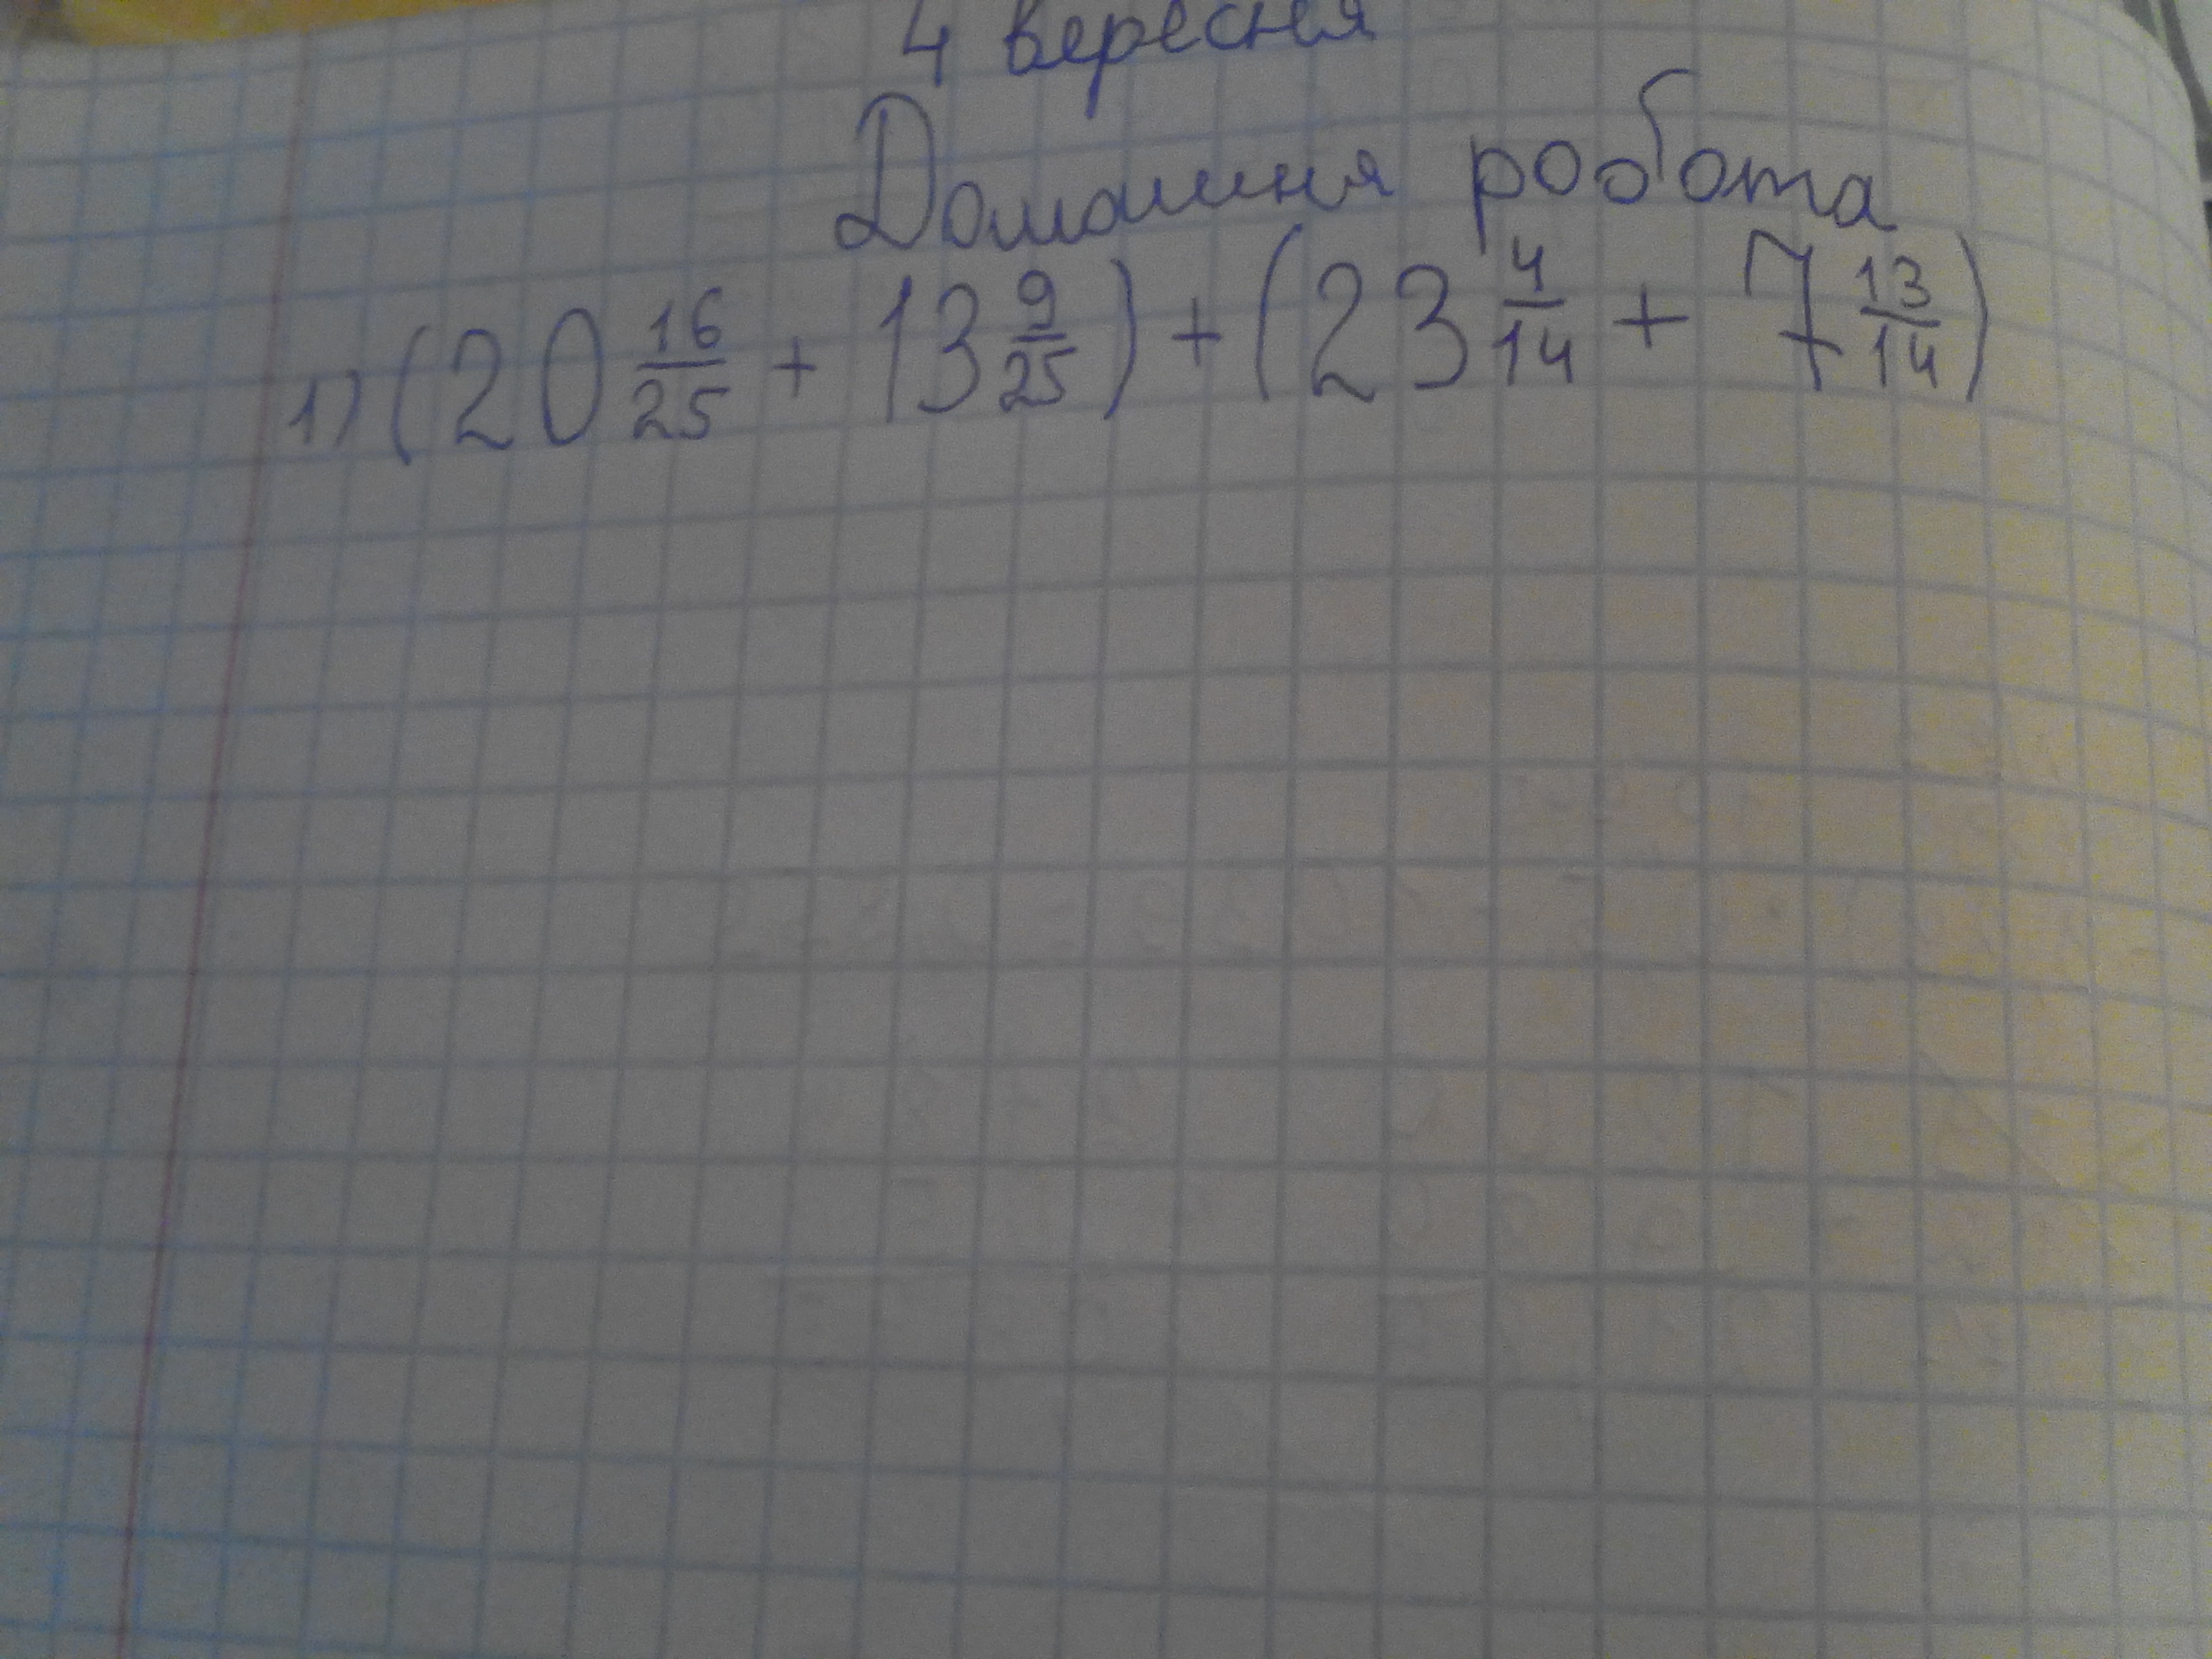 4 вересня
Домашня робота
1) (20 16/25 + 13 9/25) + (23 4/14 + 7 13/14)